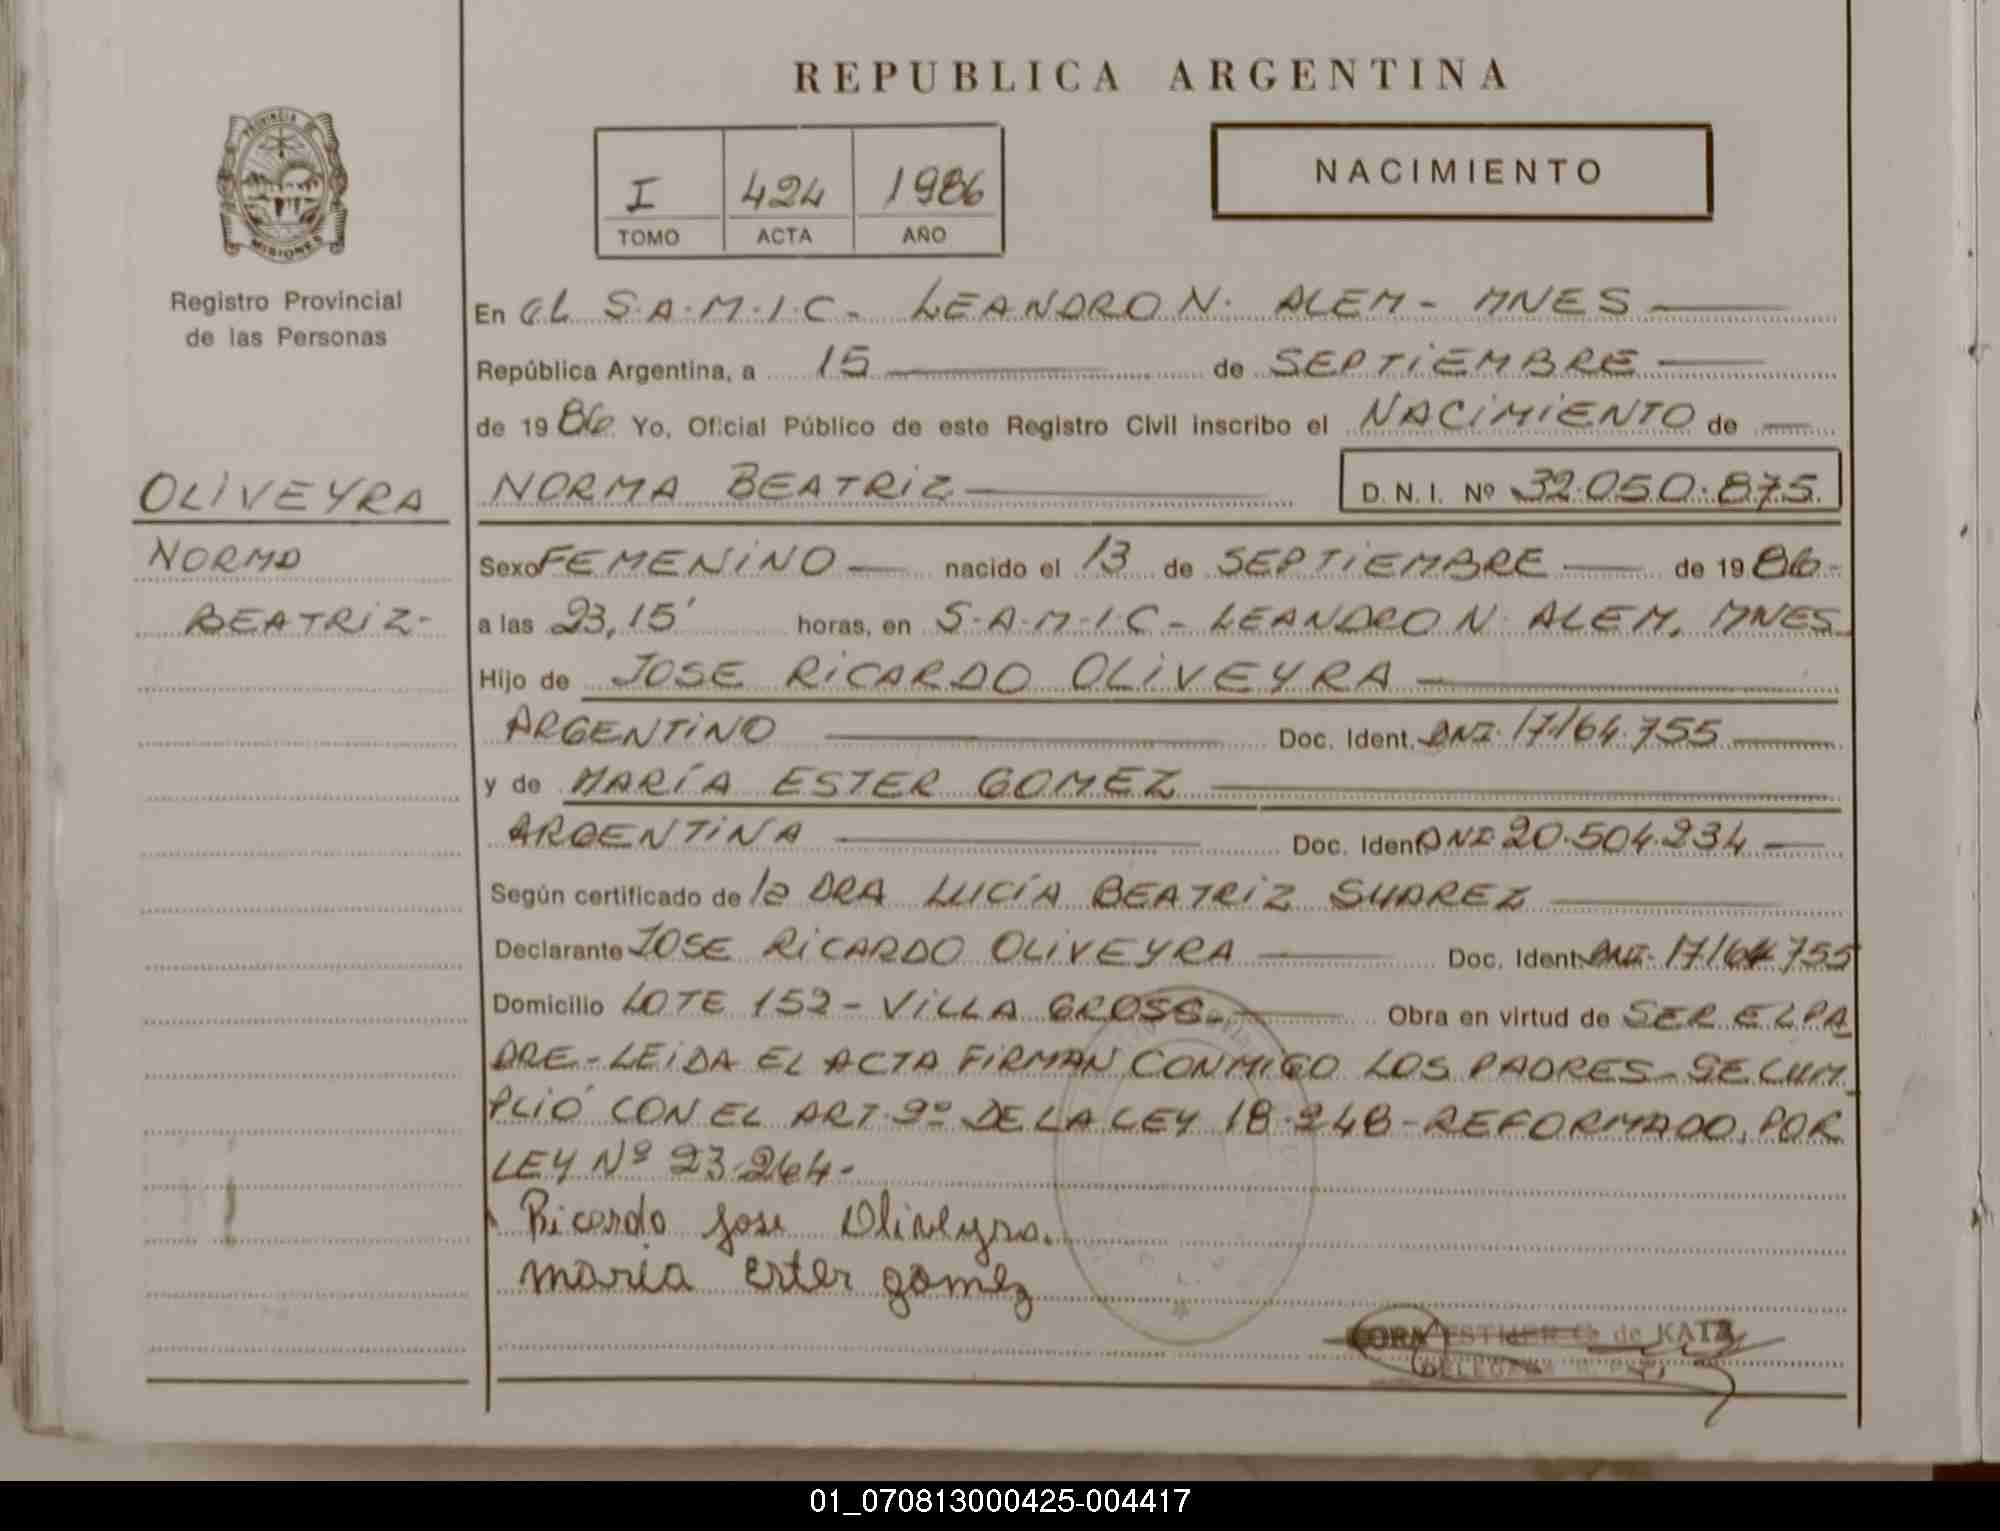 REPUBLICA ARGENTINA
PROVINCIA DE
MISIONES
Registro Provincial
de las Personas
I 424 1986
TOMO ACTA AÑO
NACIMIENTO
En el S.A.M.I.C. LEANDRO N. ALEM - MNES
República Argentina, a 15 de SEPTIEMBRE
de 1986 Yo, Oficial Público de este Registro Civil inscribo el NACIMIENTO de
OLIVEYRA
NORMA BEATRIZ D. N. I. Nº 32.050.875
NORMA
BEATRIZ-
Sexo FEMENINO nacido el 13 de SEPTIEMBRE de 1986-
a las 23,15' horas, en S.A.M.I.C - LEANDRO N. ALEM. MNES
Hijo de JOSE RICARDO OLIVEYRA
ARGENTINO Doc. Ident. DNI. 17164.755
y de MARÍA ESTER GOMEZ
ARGENTINA Doc. Ident. DNI 20.504.234
Según certificado de la DRA LUCÍA BEATRIZ SUAREZ
Declarante JOSE RICARDO OLIVEYRA Doc. Ident. DNI. 17164755
Domicilio LOTE 152 - VILLA GROSS- Obra en virtud de SER EL PA
DRE - LEIDA EL ACTA FIRMAN CONMIGO LOS PADRES - SE CUM
PLIÓ CON EL ART. 2º DE LA LEY 18.248 - REFORMADO, POR
LEY Nº 23.264-
Ricardo Jose Oliveyra.
maria ester gomez
ESTHER G. de KATZ
01_070813000425-004417